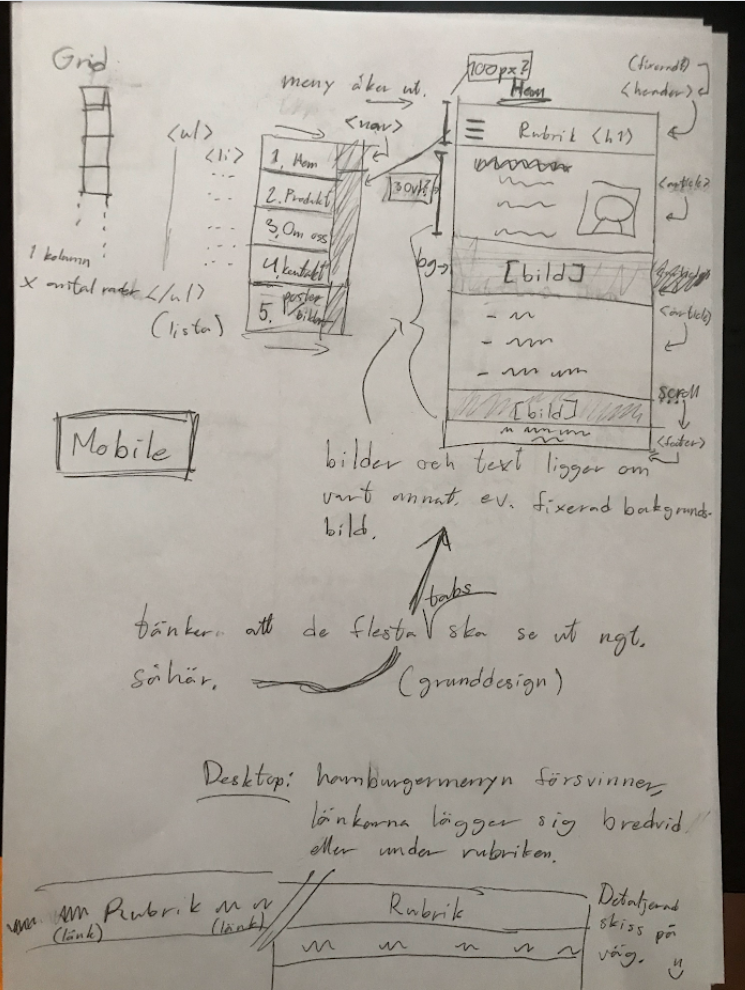 Grid
1 kolumn
X antal rader
<ul>
<li>
</ul>
(lista)
meny åker ut.
<nav>
1. Hem
2. Produkt
3. Om oss
4. kontakt
5. poster
bilder
100px?
Hem
(fixerad?)
<header>
Rubrik <h1>
30vh?
<article>
bg→
[bild]
<article>
scroll
[bild]
<footer>
Mobile
bilder och text ligger om
vart annat. ev. fixerad bakgrunds-
bild.
tabs
tänker att de flesta ska se ut ngt.
såhär.
(grunddesign)
Desktop: hamburgermenyn försvinner,
länkarna lägger sig bredvid
eller under rubriken.
Rubrik
(länk)
(länk)
Rubrik
Detaljerad
skiss på
väg.